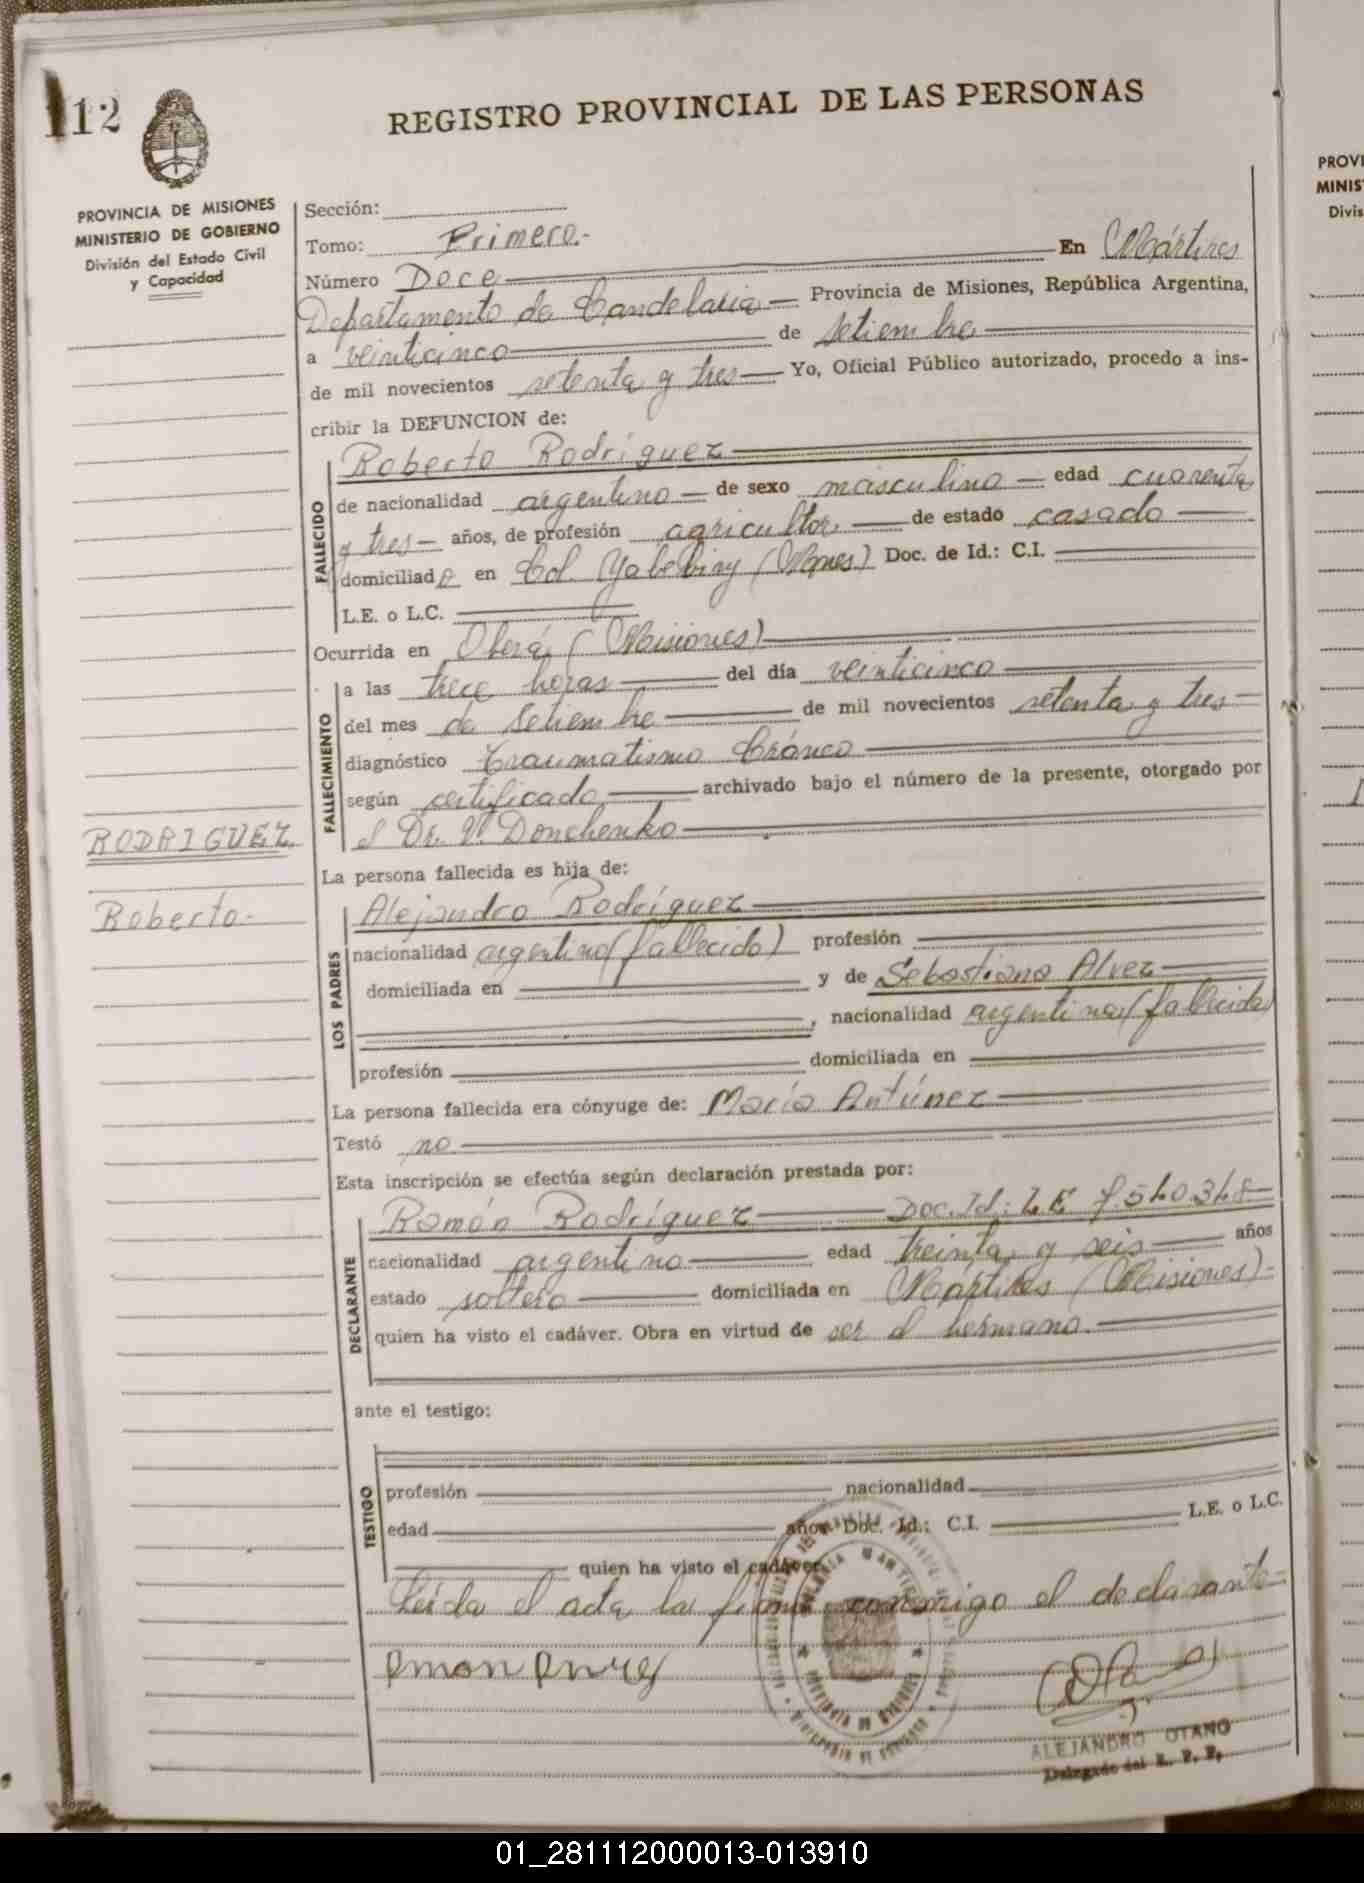 112
REGISTRO PROVINCIAL DE LAS PERSONAS
PROVINCIA DE MISIONES
MINISTERIO DE GOBIERNO
División del Estado Civil
y Capacidad
Sección:
Tomo: Primero.-
Número Doce En Mártires
Departamento de Candelaria Provincia de Misiones, República Argentina,
a veinticinco de setiembre
de mil novecientos setenta y tres Yo, Oficial Público autorizado, procedo a ins-
cribir la DEFUNCION de:
FALLECIDO
Roberto Rodríguez
de nacionalidad argentino de sexo masculino edad cuarenta
y tres años, de profesión agricultor de estado casado
domiciliado en Col. Yabebiry (Mnes) Doc. de Id.: C.I.
L.E. o L.C.
Ocurrida en Oberá (Misiones)
FALLECIMIENTO
a las trece horas del día veinticinco
del mes de setiembre de mil novecientos setenta y tres
diagnóstico Traumatismo Cráneo
según certificado archivado bajo el número de la presente, otorgado por
el Dr. V. Donchenko
RODRIGUEZ
Roberto.-
La persona fallecida es hija de:
LOS PADRES
Alejandro Rodríguez
nacionalidad argentino (fallecido) profesión
domiciliada en y de Sebastiana Alvez
, nacionalidad argentina (fallecida)
profesión domiciliada en
La persona fallecida era cónyuge de: María Antúnez
Testó no
Esta inscripción se efectúa según declaración prestada por:
DECLARANTE
Ramón Rodríguez Doc. Id: L E
nacionalidad argentino edad treinta y seis años
estado soltero domiciliada en Mártires (Misiones)-
quien ha visto el cadáver. Obra en virtud de ser el hermano.
ante el testigo:
TESTIGO
profesión nacionalidad
edad años Doc. Id.: C.I. L.E. o L.C.
quien ha visto el cadáver.
Leída el acta la firma conmigo el declarante-
PROVINCIA DE MISIONES
ALEJANDRO OTANO
Delegado del R. P. P.
PROVI
MINIS
Divis
01_281112000013-013910